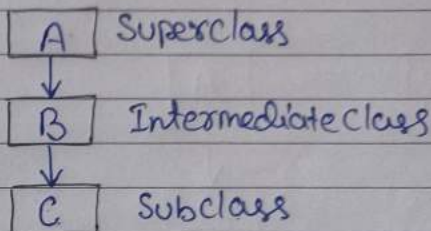 A Superclass
B Intermediate Class
C Subclass